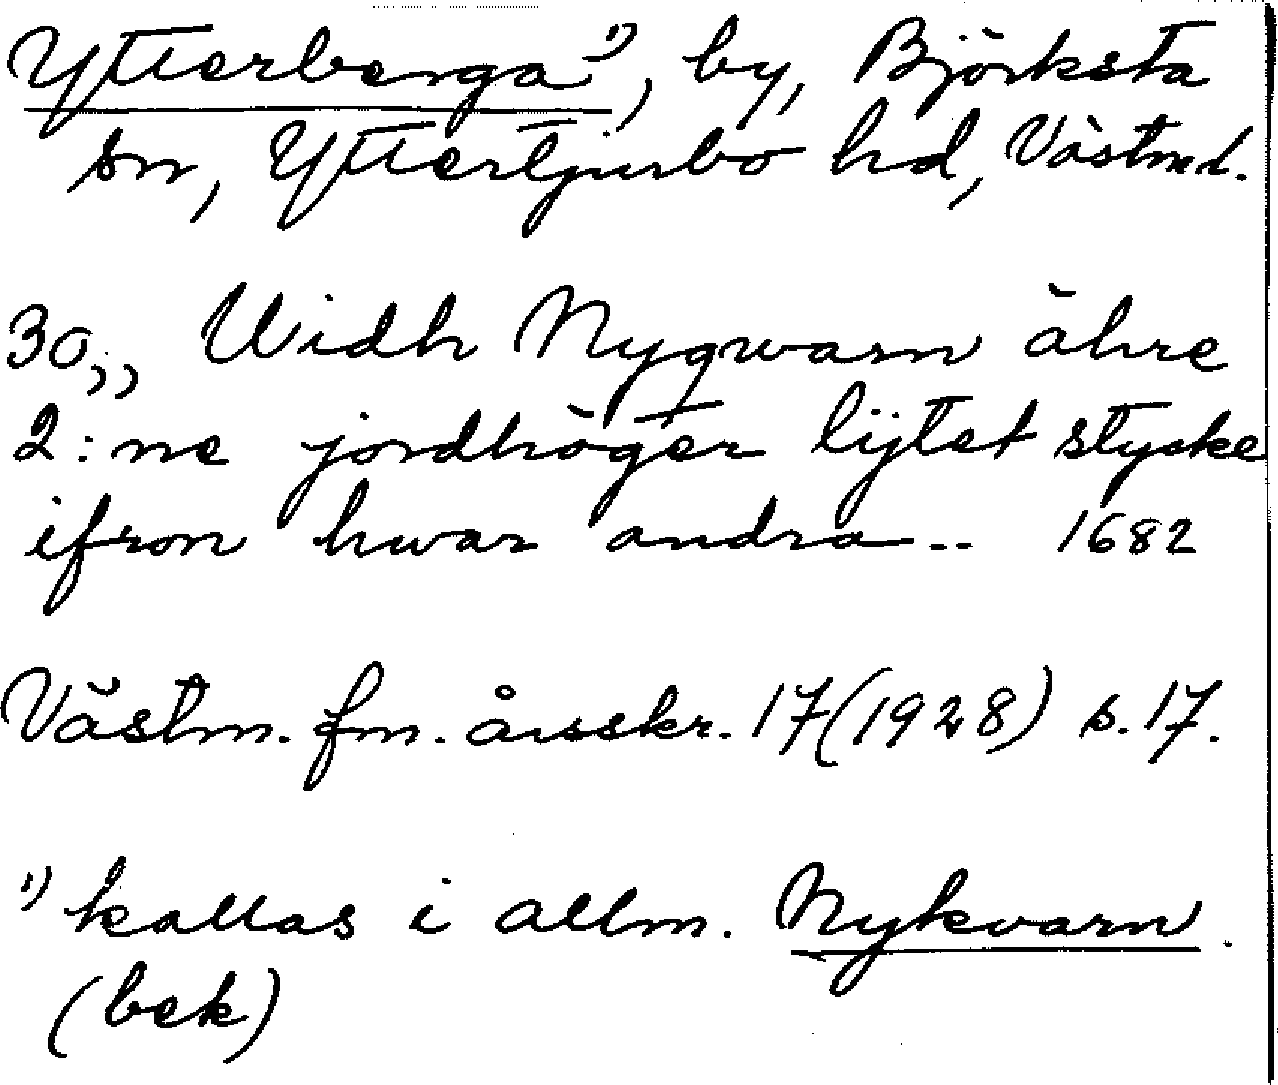 Ytterberga ¹⁾, by, Björksta
sn, Yttertjurbo hd, Västml.
30,, Widh Nygwarn ähre
2:ne jordhöger lijtet stycke
ifron hwar andra.. 1682
Västm. fm. årsskr. 17 (1928) s. 17.
¹⁾ kallas i allm. Nykvarn.
(bek)